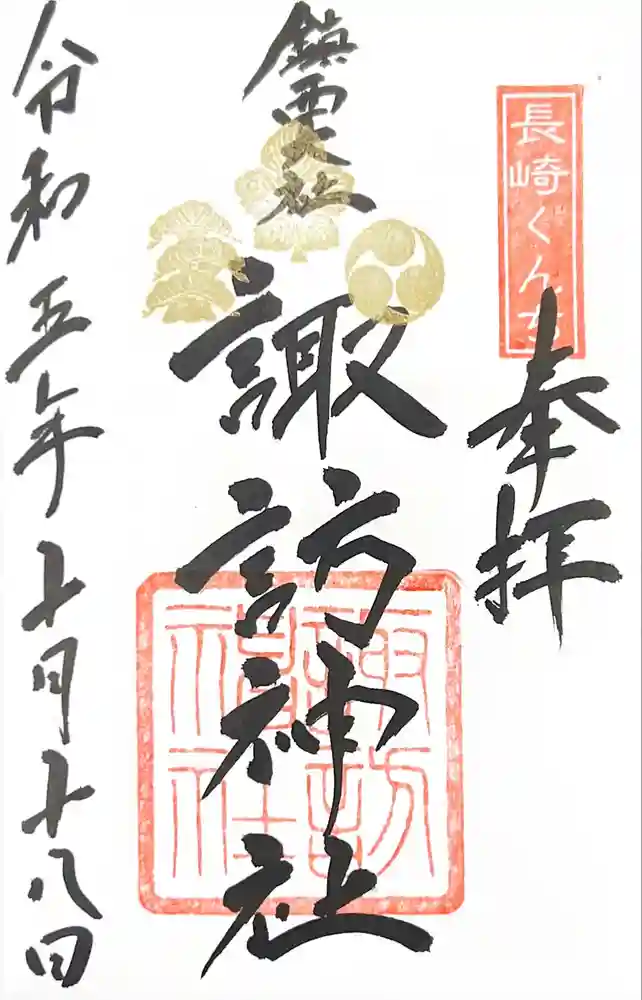 長崎くんち
奉拝
鎮西大社
諏訪神社
諏訪神社
令和五年十月十八日